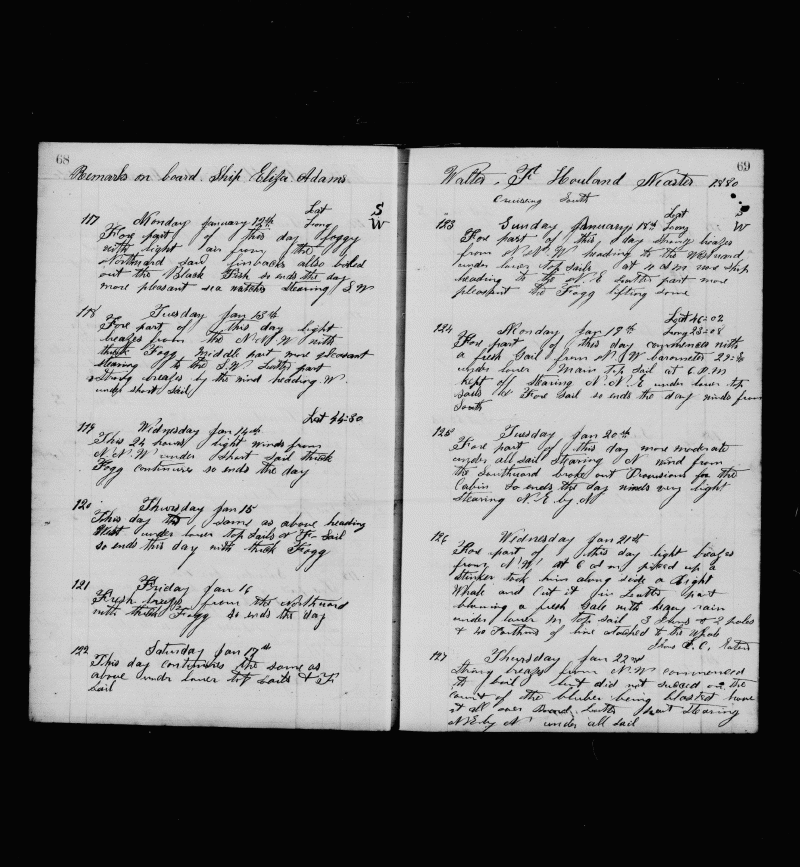 68
Remarks on board Ship Eliza Adams
Lat S
117 Monday January 12th Long W
Fore part of this day foggy
with light air from the
Northward saw finbacks allso boiled
out the Black Fish so ends the day
more pleasant sea watches Stearing S W
118 Tuesday Jan 13th
Fore part of this day light
breazes from the N.N.W with
thick Fogg Middle part more pleasant
stearing to the S.W Latter part
Strong breazes by the wind heading W.
under short Sail
Lat 44=30
119 Wednesday Jan 14th
This 24 hours light winds from
N.N.W under Short Sail thick
Fogg continues so ends the day
120 Thursday Jan 15
This day the same as above heading
West under lower top Sails & F- Sail
so ends this day with thick Fogg
121 Friday Jan 16
Fresh breazes from the Northward
with thick Fogg so ends the day
122 Saturday Jan 17th
This day continues the same as
above under lower top Sails & F
Sail
69
Walter, F Howland Master 1880
Cruising South
Lat S
123 Sunday January 18th Long W
Fore part of this day strong breazes
from N.N.W heading to the Westward
under lower top Sails at 4 A m wore ship
heading to the N.E Latter part more
pleasant the Fogg lifting some
Lat 46=02
124 Monday Jan 19th Long 23=08
Fore part of this day commences with
a fresh Gail from N.W barometer
under lower Main top Sail at 6 P.M
kept of Stearing N.N.E under lower top
Sails & Fore Sail so ends the day winds from
South
125 Tuesday Jan 20th
Fore part of this day more moderate
under all sail Stearing N wind from
the Southward broke out Provisions for the
Cabin So ends the day winds very light
Stearing N.E. by. N
126 Wednesday Jan 21st
Fore part of this day light breazes
from N.W. at 6 a m picked up a
stinker took him along side a Right
Whale and Cut it in Latter part
blowing a fresh Gale with heavy rain
under lower M. top sail 3 Irons & 2 poles
& 40 Farthoms of line atached to the Whale
Irons
127 Thursday Jan 22nd
Strong breazes from N.W commenced
to boil but did not suceed on the
count of the bluber being blasted hove
it all over board Latter part Stearing
N.E by N under all sail